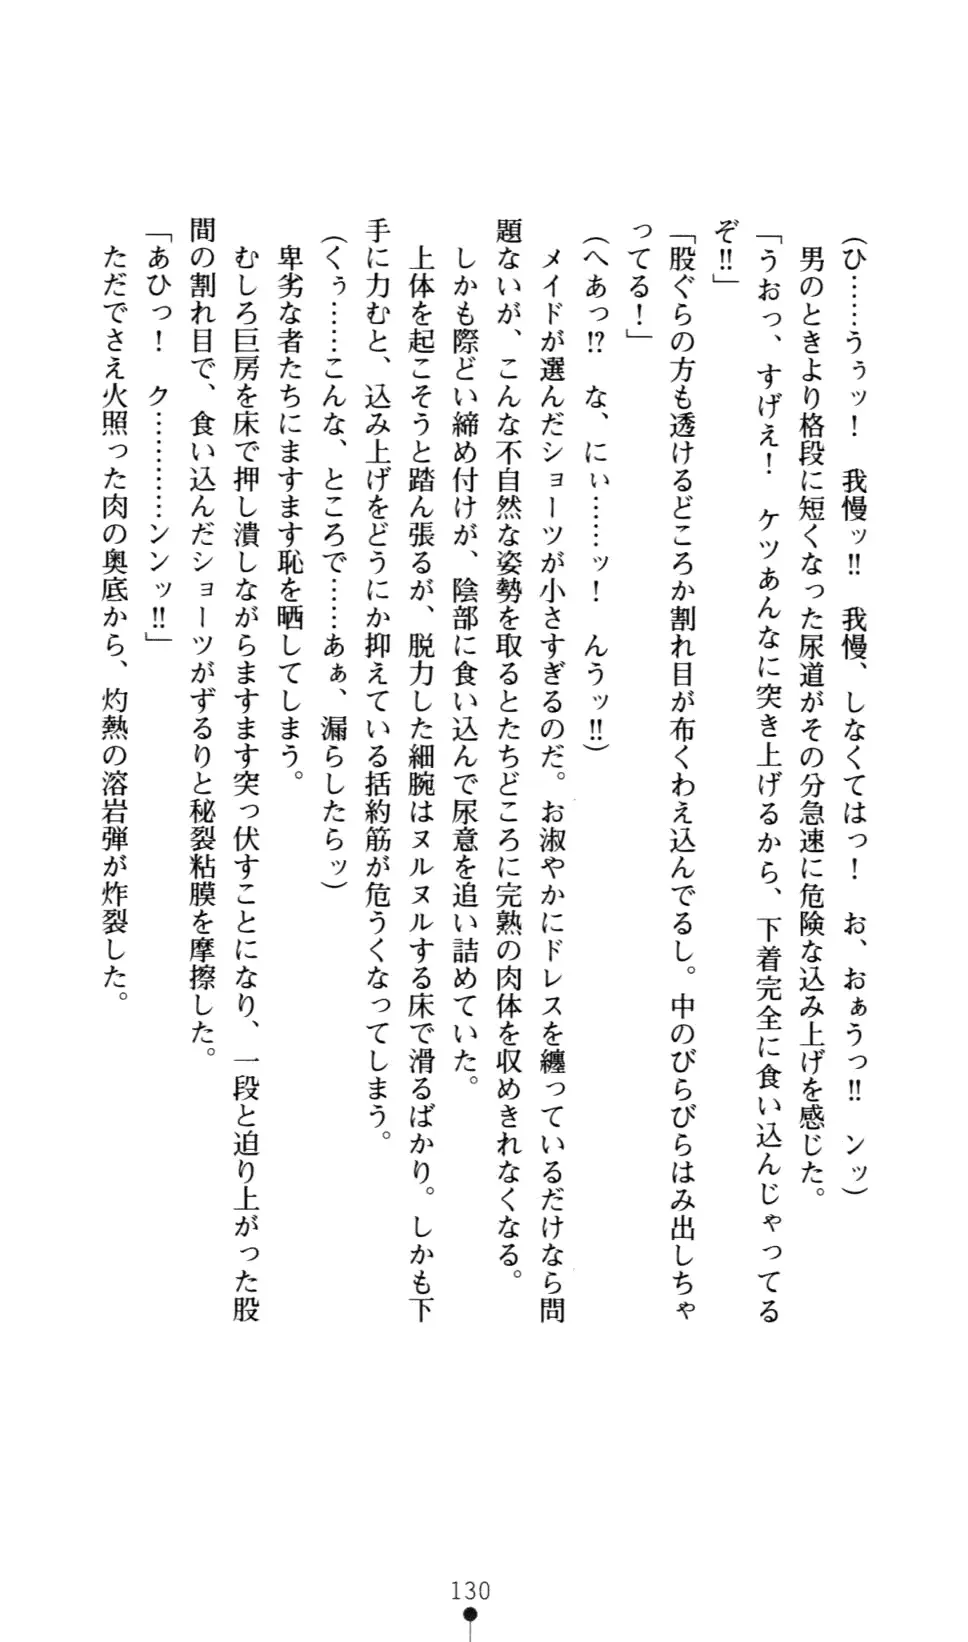 （ひ……うぅッ！　我慢ッ‼　我慢、しなくてはっ！　お、おぁうっ‼　ンッ）
　男のときより格段に短くなった尿道がその分急速に危険な込み上げを感じた。
「うおっ、すげえ！　ケツあんなに突き上げるから、下着完全に食い込んじゃってる
ぞ‼」
「股ぐらの方も透けるどころか割れ目が布くわえ込んでるし。中のびらびらはみ出しちゃ
ってる！」
（へあっ⁉　な、にぃ……ッ！　んうッ‼）
　メイドが選んだショーツが小さすぎるのだ。お淑やかにドレスを纏っているだけなら問
題ないが、こんな不自然な姿勢を取るとたちどころに完熟の肉体を収めきれなくなる。
　しかも際どい締め付けが、陰部に食い込んで尿意を追い詰めていた。
　上体を起こそうと踏ん張るが、脱力した細腕はヌルヌルする床で滑るばかり。しかも下
手に力むと、込み上げをどうにか抑えている括約筋が危うくなってしまう。
（くぅ……こんな、ところで……あぁ、漏らしたらッ）
　卑劣な者たちにますます恥を晒してしまう。
　むしろ巨房を床で押し潰しながらますます突っ伏すことになり、一段と迫り上がった股
間の割れ目で、食い込んだショーツがずるりと秘裂粘膜を摩擦した。
「あひっ！　ク…………ンンッ‼」
　ただでさえ火照った肉の奥底から、灼熱の溶岩弾が炸裂した。
130